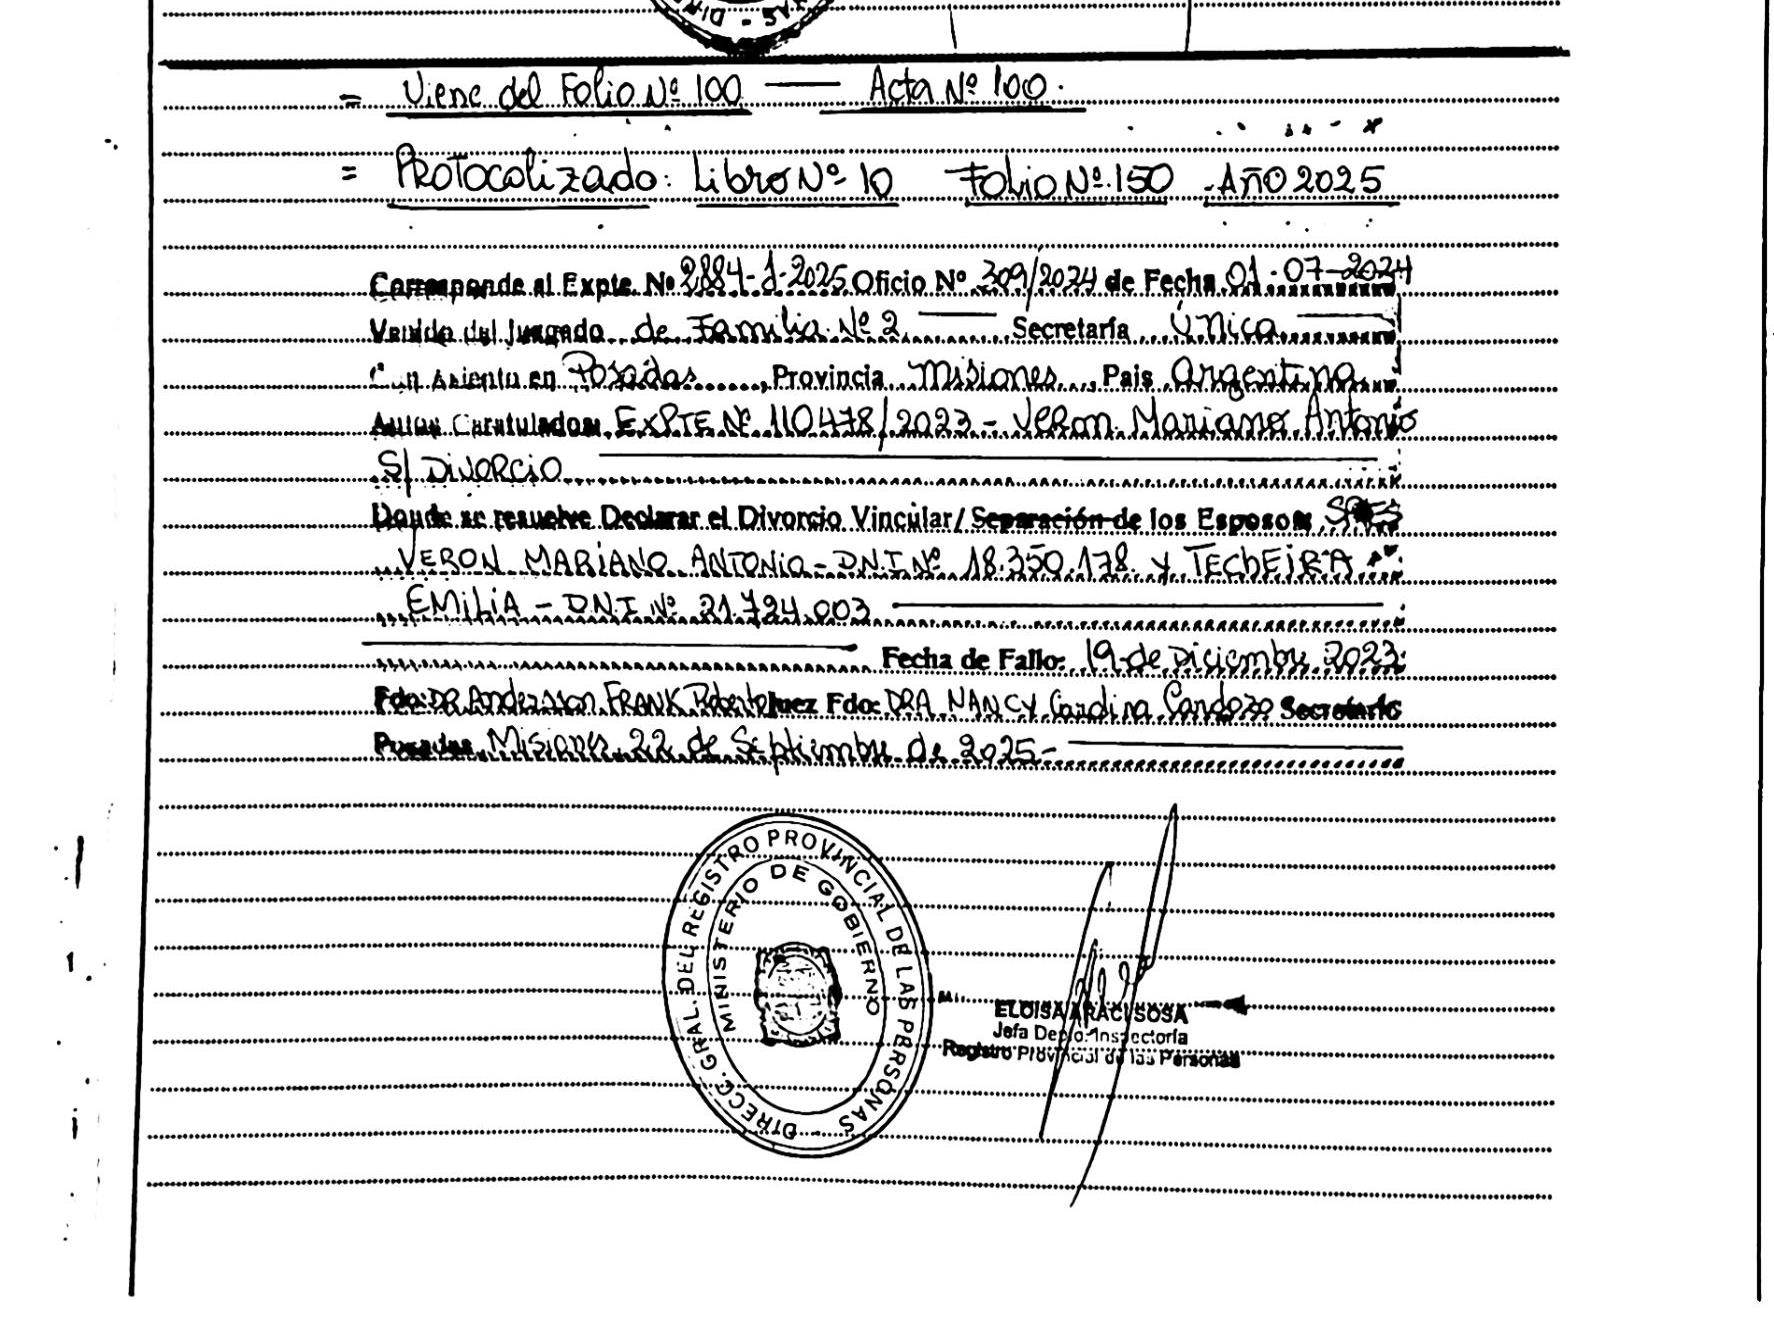 = Viene del Folio Nº 100 — Acta Nº 100.
= Protocolizado: Libro Nº 10 Folio Nº 150 - AÑO 2025
Corresponde al Expte. Nº 2884-J-2025 Oficio Nº 309/2024 de Fecha 01-07-2024
Venido del Juzgado de Familia Nº 2 — Secretaría Única —
Con asiento en Posadas, Provincia Misiones, Pais Argentina
Autos Caratulados: EXPTE Nº 110478/2023 - Veron Mariano Antonio
S/ DIVORCIO
Donde se resuelve Declarar el Divorcio Vincular/ Separación de los Esposos: SRES
VERON MARIANO ANTONIO - D.N.I Nº 18.350.178 y TECHEIRA
EMILIA - D.N.I Nº 21.724.003
Fecha de Fallo: 19 de Diciembre 2023
Fdo: DR Andersson FRANK Roberto Juez Fdo: DRA NANCY Carolina Cardozo Secretario
Posadas, Misiones 22 de Septiembre de 2025-
DIRECC. GRAL. DEL REGISTRO PROVINCIAL DE LAS PERSONAS -
MINISTERIO DE GOBIERNO
ELOISA ARACI SOSA
Jefa Depto. Inspectoría
Registro Provincial de las Personas